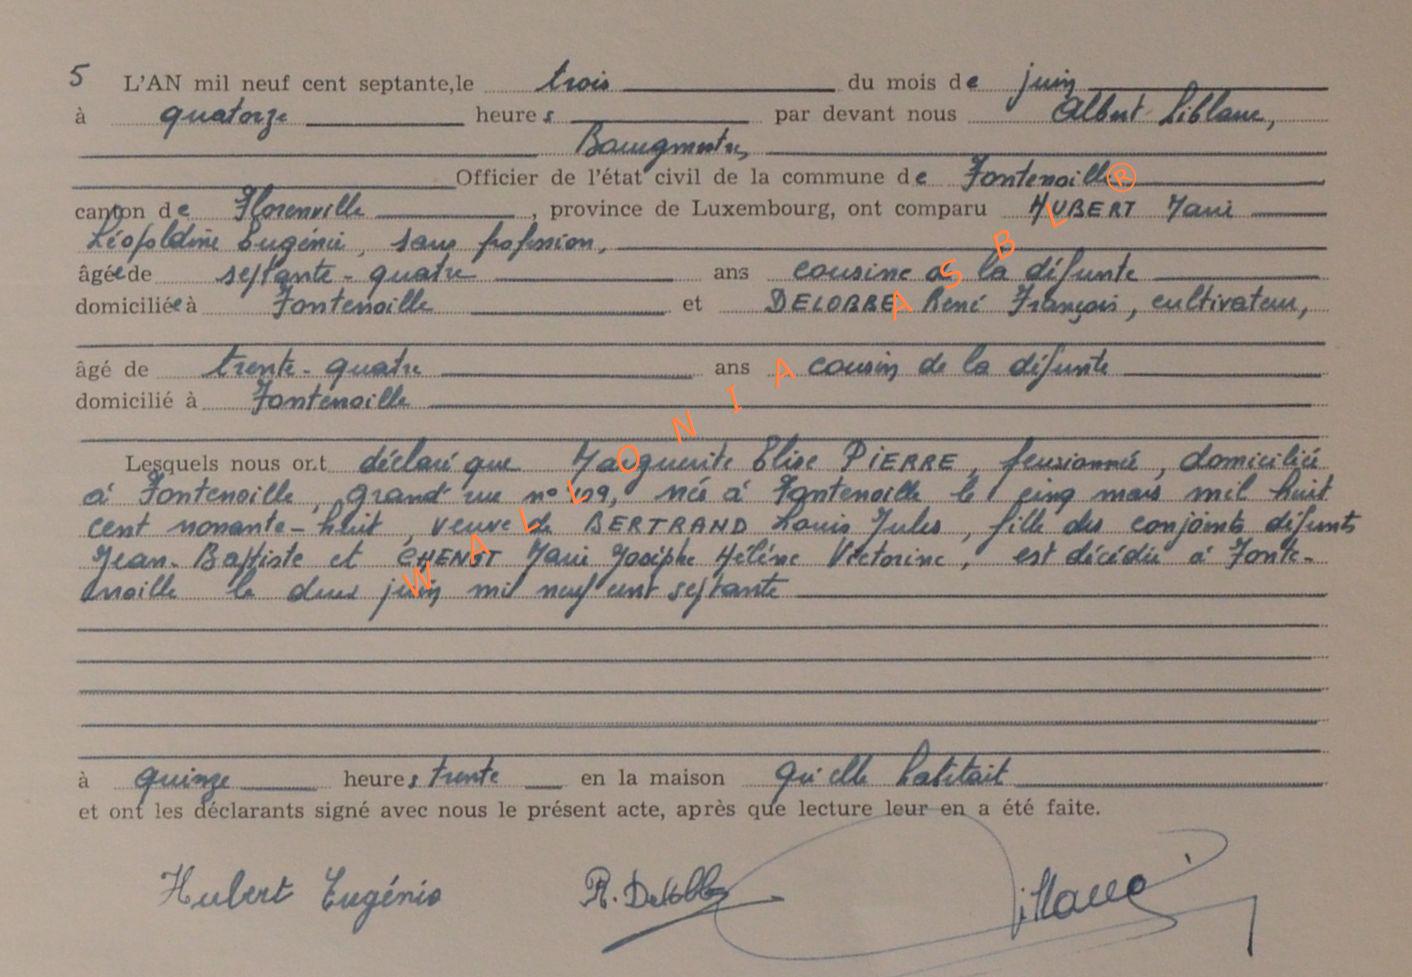 5 L'AN mil neuf cent septante, le trois du mois de juin
à quatorze heures par devant nous Albert Liblanc,
Bourgmestre,
Officier de l'état civil de la commune de Fontenoille
canton de Florenville, province de Luxembourg, ont comparu HUBERT Marie
Léopoldine Eugénie, sans profession,
âgée de septante-quatre ans cousine de la défunte
domiciliée à Fontenoille et DELOBBE René François, cultivateur,
âgé de trente-quatre ans cousin de la défunte
domicilié à Fontenoille
Lesquels nous ont déclaré que Marguerite Elise PIERRE, pensionnée, domiciliée
à Fontenoille, grand'rue n° 109, née à Fontenoille le cinq mars mil huit
cent nonante-huit, veuve de BERTRAND Louis Jules, fille des conjoints défunts
Jean-Baptiste et CHENOT Marie Josèphe Hélène Victorine, est décédée à Fonte-
noille le deux juin mil neuf cent septante
à quinze heures trente en la maison qu'elle habitait
et ont les déclarants signé avec nous le présent acte, après que lecture leur en a été faite.
Hubert Eugénie R. Delobbe
WALLONIA ASBL ®